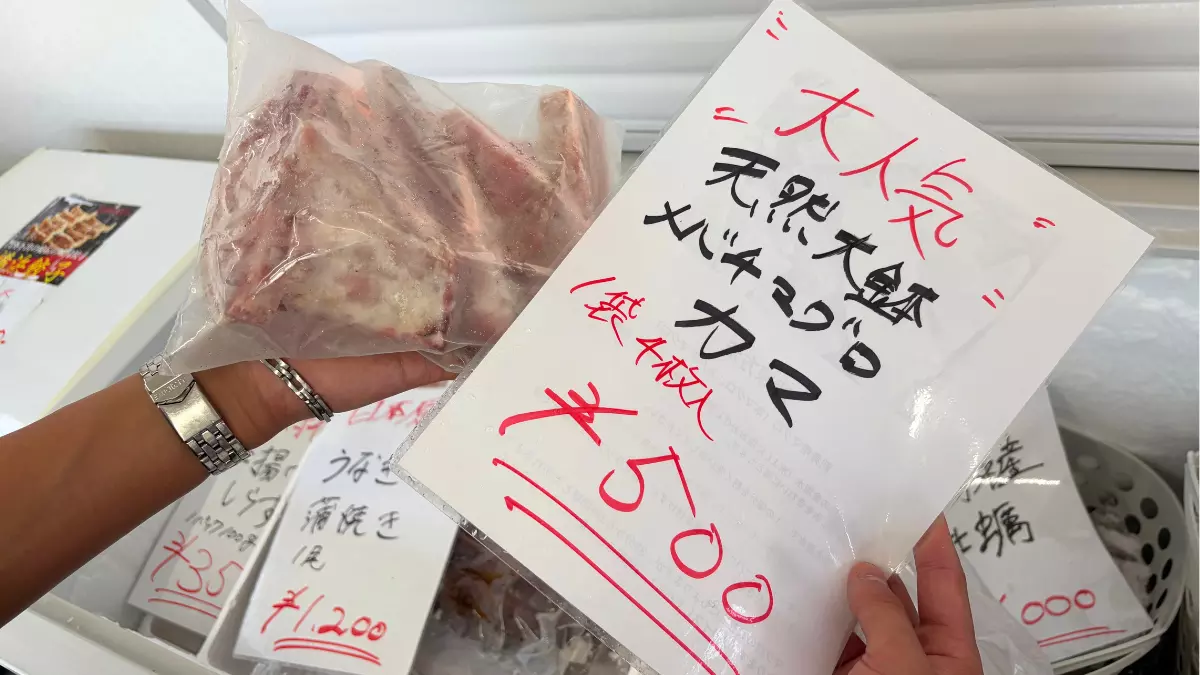 大人気
天然大鉢
メバチマグロ
カマ
1袋4枚入
¥500
うなぎ
蒲焼き
1尾
¥1.200
しらす
¥35
産
牡蠣
000
餃子